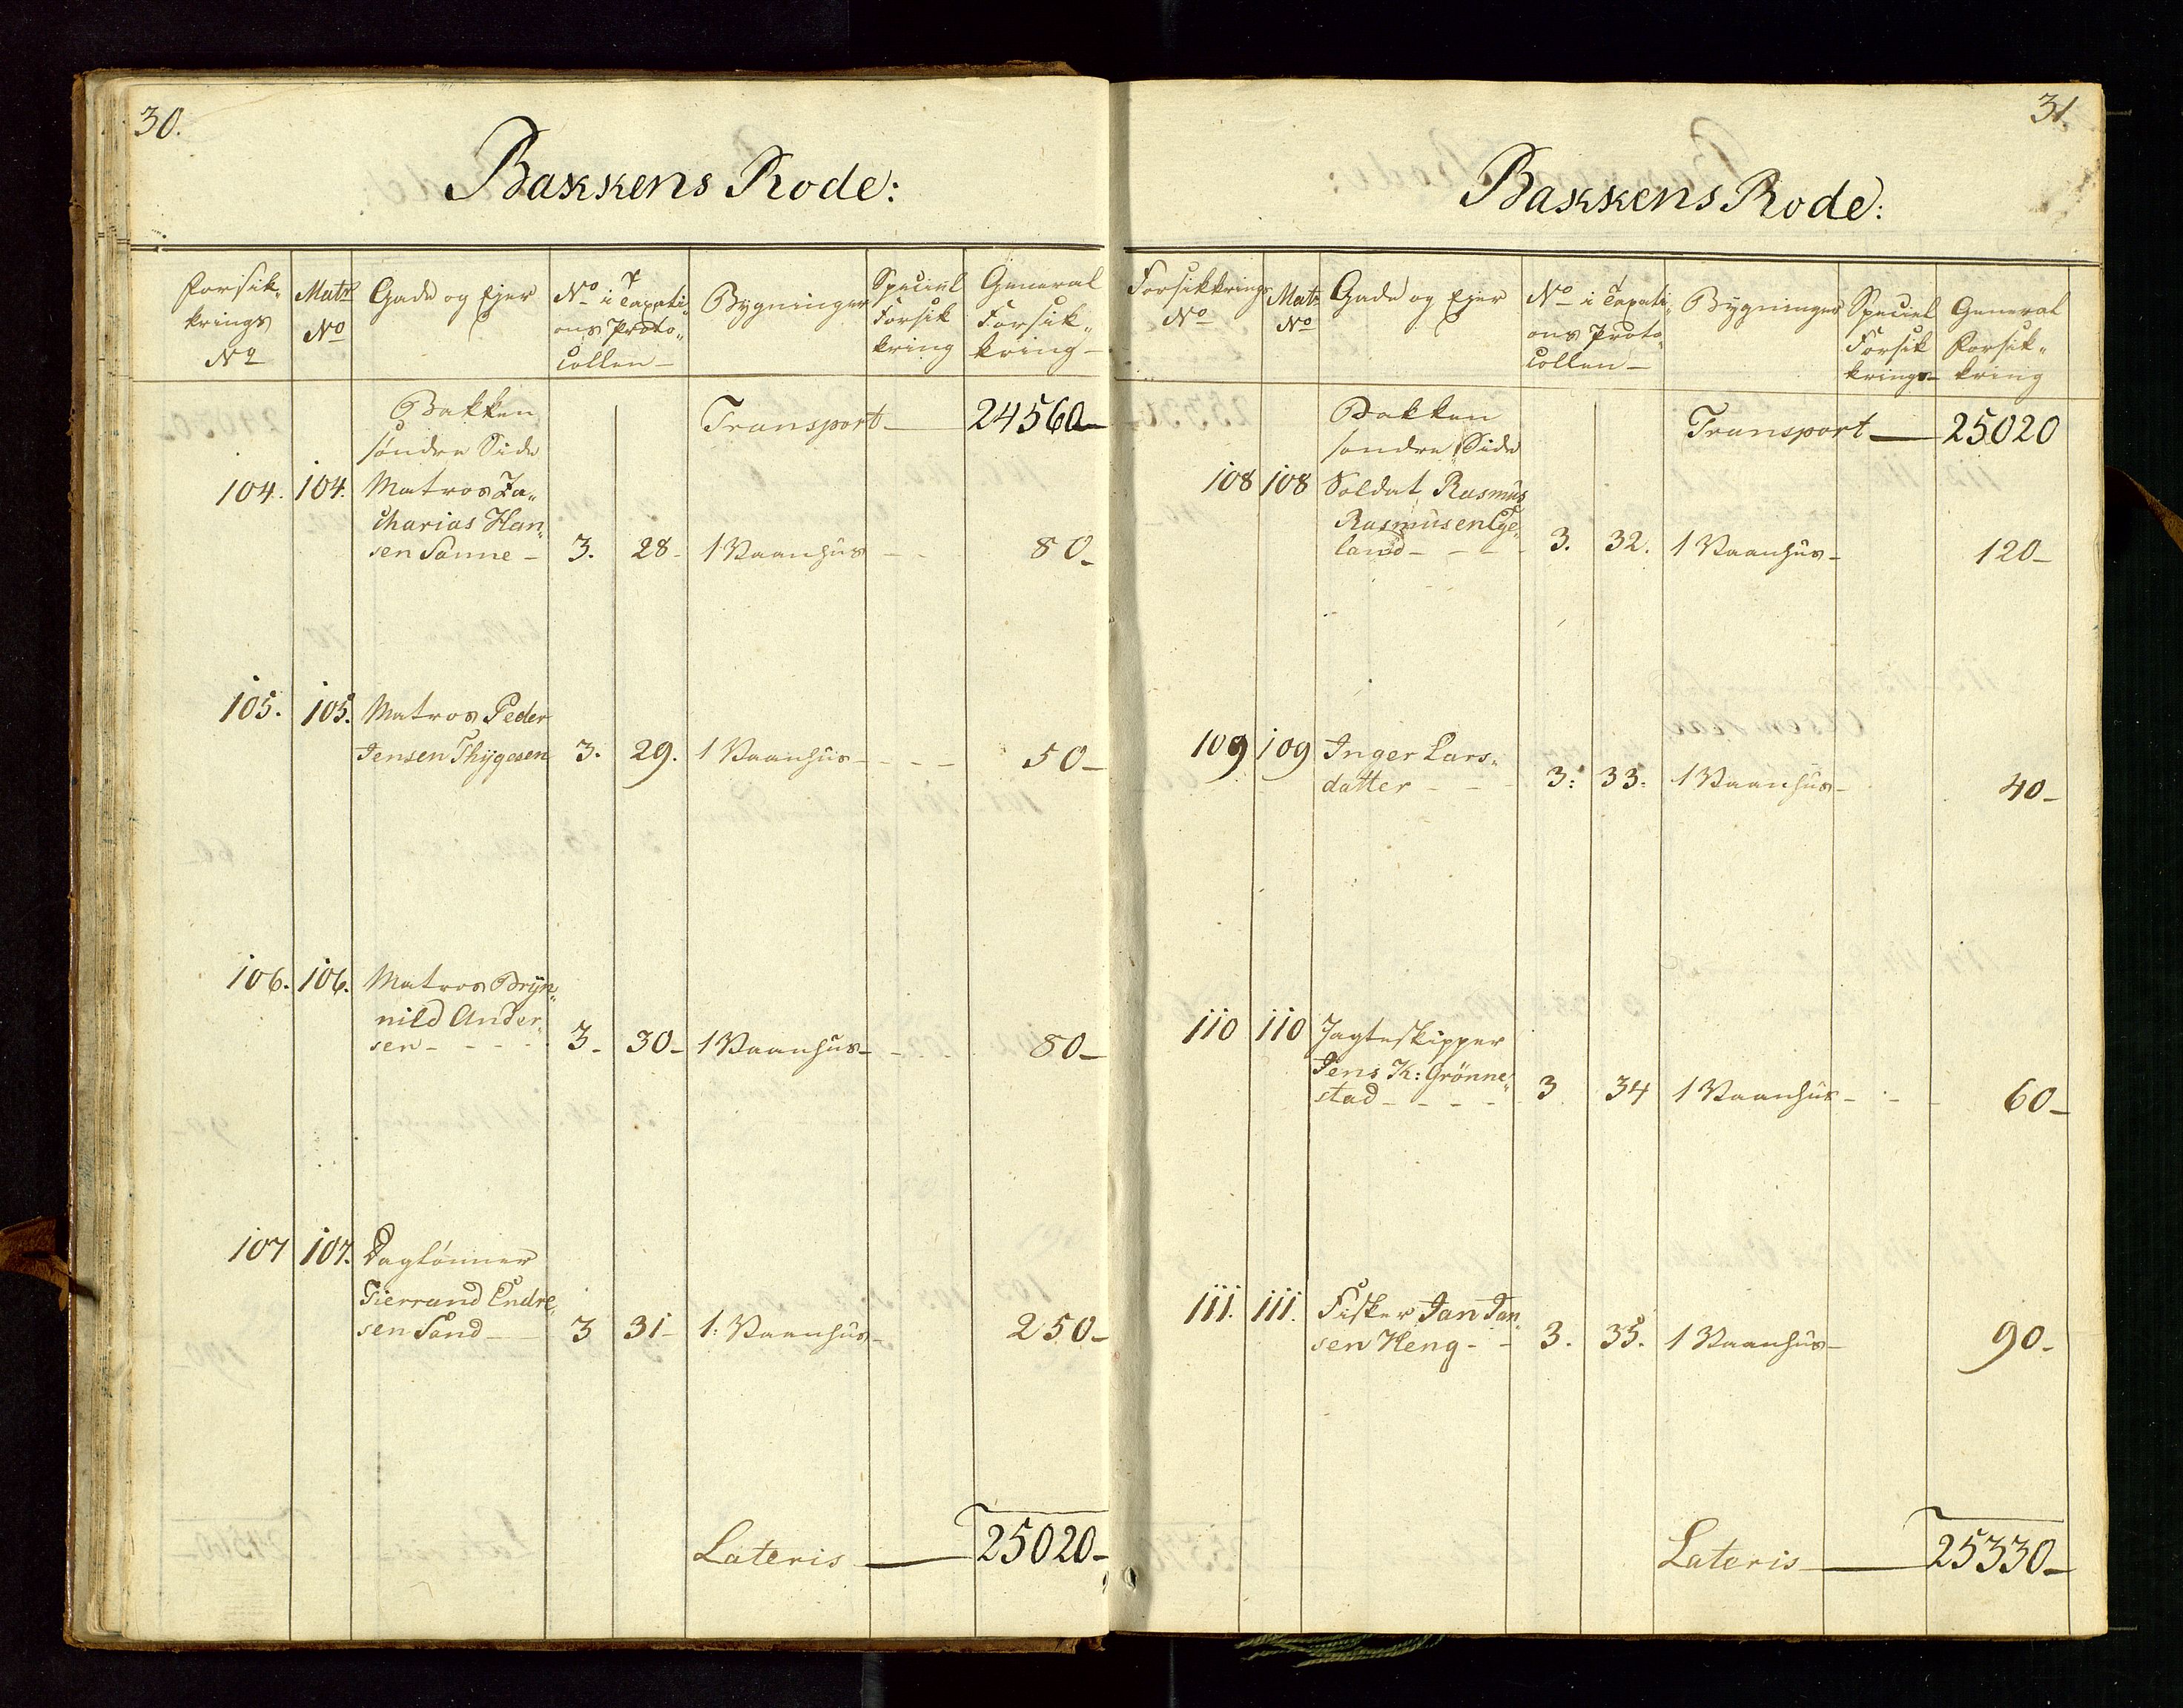 30.
Bakkens Rode:
Forsik-
krings
No
Matr
No
Gade og Ejer
No i Taxati-
ons Proto-
collen -
Bygninger
Speciel
Forsik
kring
General
Forsik-
kring -
Bakken
søndre Side
Transport - 24560 -
104. 104. Matros Za-
charias Han-
sen Sanne - 3. 28 - 1 Vaanhus - - 80 -
105. 105. Matros Peder
Jensen Thÿgesen 3. 29. 1 Vaanhus - - - 50 -
106. 106. Matros Brÿn-
nild Ander-
sen - - - - 3 - 30 - 1 Vaanhus - - - 80 -
107 107. Daglønner
Tierrand Endre-
sen Sand - - 3 31 - 1: Vaanhus - 250 -
Lateris - 25020 -
31.
Bakkens Rode:
Forsikkrings
No
Matr
No
Gade og Ejer
No i Taxati-
ons Proto-
collen -
Bygninger
Speciel
Forsik
krings -
General
Forsik-
kring
Bakken
søndre Side
Transport - 25020
108 108 Soldat Rasmus
Rasmusen Ege-
land - - - - 3. 32. 1 Vaanhus - 120 -
109 109 Inger Lars-
datter - - - 3: 33: 1 Vaanhus - 40 -
110 110 Jagteskipper
Jens K: Grönne-
stad - - - - 3 34 1 Vaanhus - - - 60 -
111. 111. Fisker Jan Jan-
sen Heng - - 3. 35. 1 Vaanhus - 90 -
Lateris - 25330 -